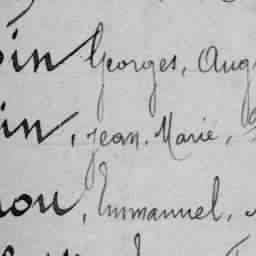 in Georges, Aug
in, Jean-Marie,
ou, Emmanuel,